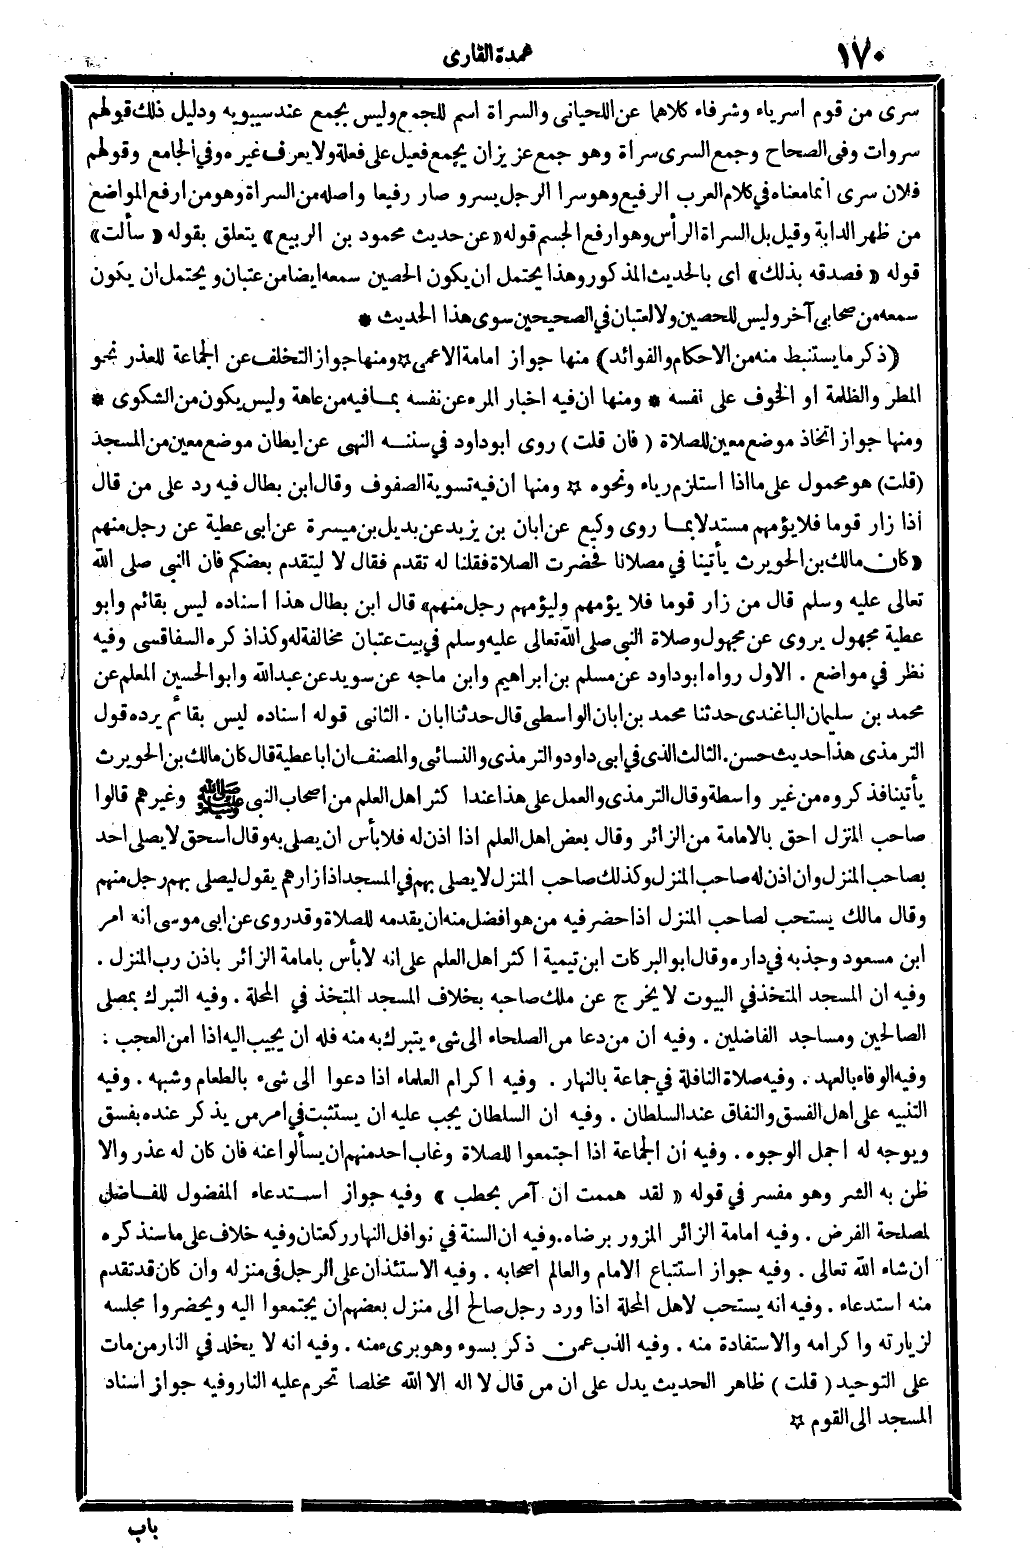 ١٧٠
عمدة القارى
سرى من قوم اسرياء وشرفاء كلاهما عن اللحيانى والسراة اسم للجمع وليس بجمع عند سيبويه ودليل ذلك قولهم
سروات وفى الصحاح وجمع السرى سراة وهو جمع عزيزان يجمع فعيل على فعلة ولا يعرف غيره وفي الجامع وقولهم
فلان سرى انما معناه في كلام العرب الرفيع وهو سرا الرجل يسرو صار رفيعا واصله من السراة وهو من ارفع المواضع
من ظهر الدابة وقيل بل السراة الرأس وهو ارفع الجسم قوله «عن حديث محمود بن الربيع» يتعلق بقوله «سألت»
قوله «فصدقه بذلك» اى بالحديث المذكور وهذا يحتمل ان يكون الحصين سمعه ايضا من عتبان ويحتمل ان يكون
سمعه من صحابى آخر وليس للحصين ولا لعتبان في الصحيحين سوى هذا الحديث *
(ذكر ما يستنبط منه من الاحكام والفوائد) منها جواز امامة الاعمى ☆ ومنها جواز التخلف عن الجماعة للعذر نحو
المطر والظلمة او الخوف على نفسه * ومنها ان فيه اخبار المرء عن نفسه بما فيه من عاهة وليس يكون من الشكوى *
ومنها جواز اتخاذ موضع معين للصلاة (فان قلت) روى ابو داود في سننه النهى عن ايطان موضع معين من المسجد
(قلت) هو محمول على ما اذا استلزم رياء ونحوه ☆ ومنها ان فيه تسوية الصفوف وقال ابن بطال فيه رد على من قال
اذا زار قوما فلا يؤمهم مستدلا بما روى وكيع عن ابان بن يزيد عن بديل بن ميسرة عن ابى عطية عن رجل منهم
«كان مالك بن الحويرث يأتينا في مصلانا فحضرت الصلاة فقلنا له تقدم فقال لا ليتقدم بعضكم فان النبى صلى الله
تعالى عليه وسلم قال من زار قوما فلا يؤمهم وليؤمهم رجل منهم» قال ابن بطال هذا اسناده ليس بقائم وابو
عطية مجهول يروى عن مجهول وصلاة النبى صلى الله تعالى عليه وسلم في بيت عتبان مخالفة له وكذا ذكره السفاقسى وفيه
نظر في مواضع . الاول رواه ابو داود عن مسلم بن ابراهيم وابن ماجه عن سويد عن عبدالله وابو الحسين المعلم عن
محمد بن سليمان الباغندى حدثنا محمد بن ابان الواسطى قال حدثنا ابان . الثانى قوله اسناده ليس بقائم يرده قول
الترمذى هذا حديث حسن . الثالث الذى في ابى داود والترمذى والنسائى والمصنف ان ابا عطية قال كان مالك بن الحويرث
يأتينا فذكروه من غير واسطة وقال الترمذى والعمل على هذا عند اكثر اهل العلم من اصحاب النبى ﷺ وغيرهم قالوا
صاحب المنزل احق بالامامة من الزائر وقال بعض اهل العلم اذا اذن له فلا بأس ان يصلى به وقال اسحق لا يصلى احد
بصاحب المنزل وان اذن له صاحب المنزل وكذلك صاحب المنزل لا يصلى بهم في المسجد اذا زارهم يقول ليصلى بهم رجل منهم
وقال مالك يستحب لصاحب المنزل اذا حضر فيه من هو افضل منه ان يقدمه للصلاة وقد روى عن ابى موسى انه امر
ابن مسعود وجذبه في داره وقال ابو البركات ابن تيمية اكثر اهل العلم على انه لا بأس بامامة الزائر باذن رب المنزل .
وفيه ان المسجد المتخذ في البيوت لا يخرج عن ملك صاحبه بخلاف المسجد المتخذ في المحلة . وفيه التبرك بمصلى
الصالحين ومساجد الفاضلين . وفيه ان من دعا من الصلحاء الى شىء يتبرك به منه فله ان يجيب اليه اذا امن العجب :
وفيه الوفاء بالعهد . وفيه صلاة النافلة في جماعة بالنهار . وفيه اكرام العلماء اذا دعوا الى شىء بالطعام وشبهه . وفيه
التنبيه على اهل الفسق والنفاق عند السلطان . وفيه ان السلطان يجب عليه ان يستثبت في امر من يذكر عنده بفسق
ويوجه له اجمل الوجوه . وفيه ان الجماعة اذا اجتمعوا للصلاة وغاب احد منهم ان يسألوا عنه فان كان له عذر والا
ظن به الشر وهو مفسر في قوله «لقد هممت ان آمر بحطب» وفيه جواز استدعاء المفضول للفاضل
لمصلحة الفرض . وفيه امامة الزائر المزور برضاه . وفيه ان السنة في نوافل النهار ركعتان وفيه خلاف على ما سنذكره
ان شاء الله تعالى . وفيه جواز استتباع الامام والعالم اصحابه . وفيه الاستئذان على الرجل فى منزله وان كان قد تقدم
منه استدعاء . وفيه انه يستحب لاهل المحلة اذا ورد رجل صالح الى منزل بعضهم ان يجتمعوا اليه ويحضروا مجلسه
لزيارته واكرامه والاستفادة منه . وفيه الذب عمن ذكر بسوء وهو برىء منه . وفيه انه لا يخلد في النار من مات
على التوحيد (قلت) ظاهر الحديث يدل على ان من قال لا اله الا الله مخلصا تحرم عليه النار وفيه جواز اسناد
المسجد الى القوم ☆
باب